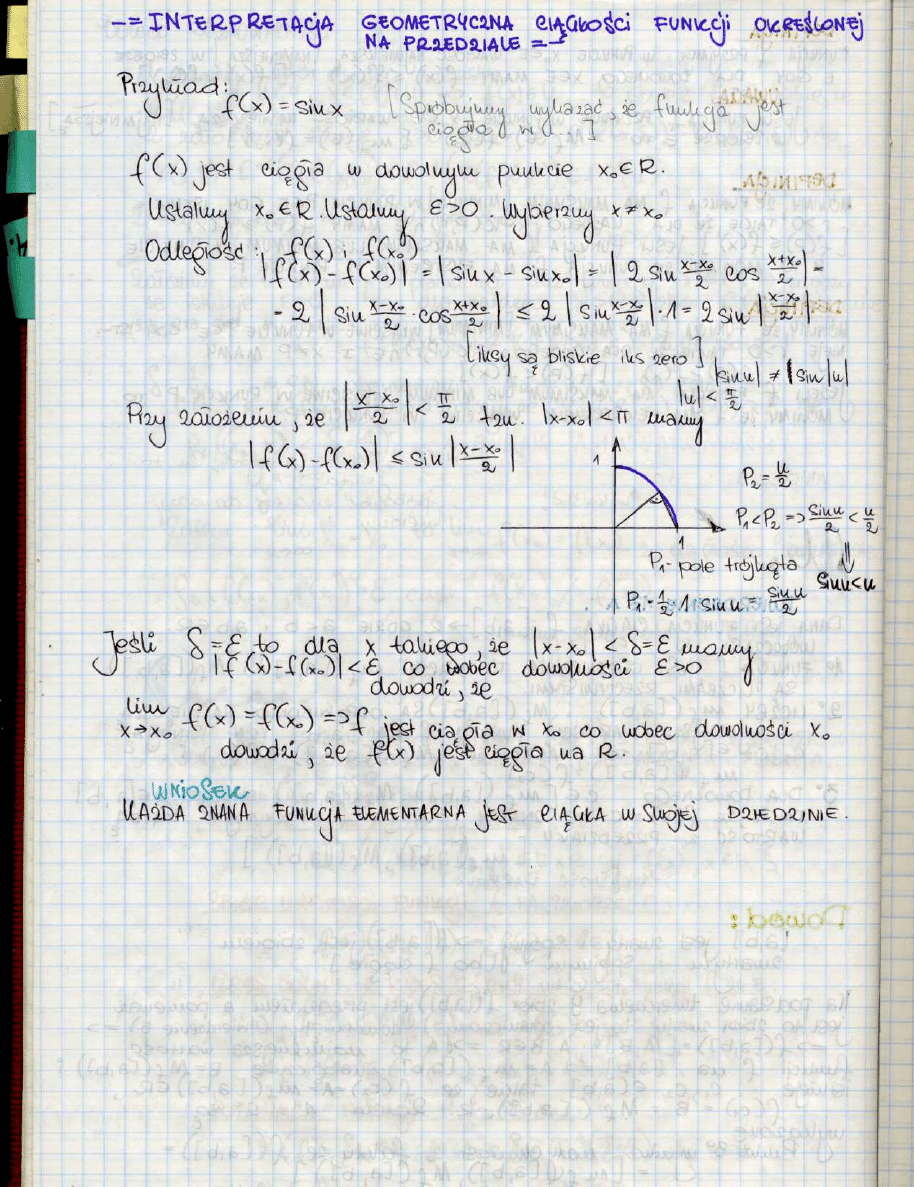 -= INTERPRETACJA GEOMETRYCZNA CIĄGŁOŚCI FUNKCJI OKREŚLONEJ
NA PRZEDZIALE =-
Przykład:
f(x) = sin x [Spróbujmy wykazać, że funkcja jest
ciągła w ...]
f(x) jest ciągła w dowolnym punkcie x₀ ∈ R.
Ustalmy x₀ ∈ R. Ustalmy ε > 0. Wybierzmy x ≠ x₀
Odległość: f(x) i f(x₀)
|f(x) - f(x₀)| = |sin x - sin x₀| = |2 sin (x-x₀)/2 cos (x+x₀)/2| =
= 2 |sin (x-x₀)/2 · cos (x+x₀)/2| ≤ 2 |sin (x-x₀)/2| · 1 = 2 sin |(x-x₀)/2|
[iksy są bliskie iks zero]
|sin u| ≠ |sin |u|
|u| < π/2
Przy założeniu, że |(x-x₀)/2| < π/2 tzn. |x-x₀| < π mamy
|f(x) - f(x₀)| ≤ sin |(x-x₀)/2|
1
P₂ = u/2
P₁ < P₂ => sin u/2 < u/2
1
P₁ - pole trójkąta
⇓
sin u < u
P₁ - 1/2 · 1 · sin u = sin u/2
Jeśli δ = ε to dla x takiego, że |x-x₀| < δ = ε mamy
|f(x) - f(x₀)| < ε co wobec dowolności ε > 0
dowodzi, że
lim x→x₀ f(x) = f(x₀) => f jest ciągła w x₀ co wobec dowolności x₀
dowodzi, że f(x) jest ciągła na R.
WNIOSEK
KAŻDA ZNANA FUNKCJA ELEMENTARNA JEST CIĄGŁA W SWOJEJ DZIEDZINIE.